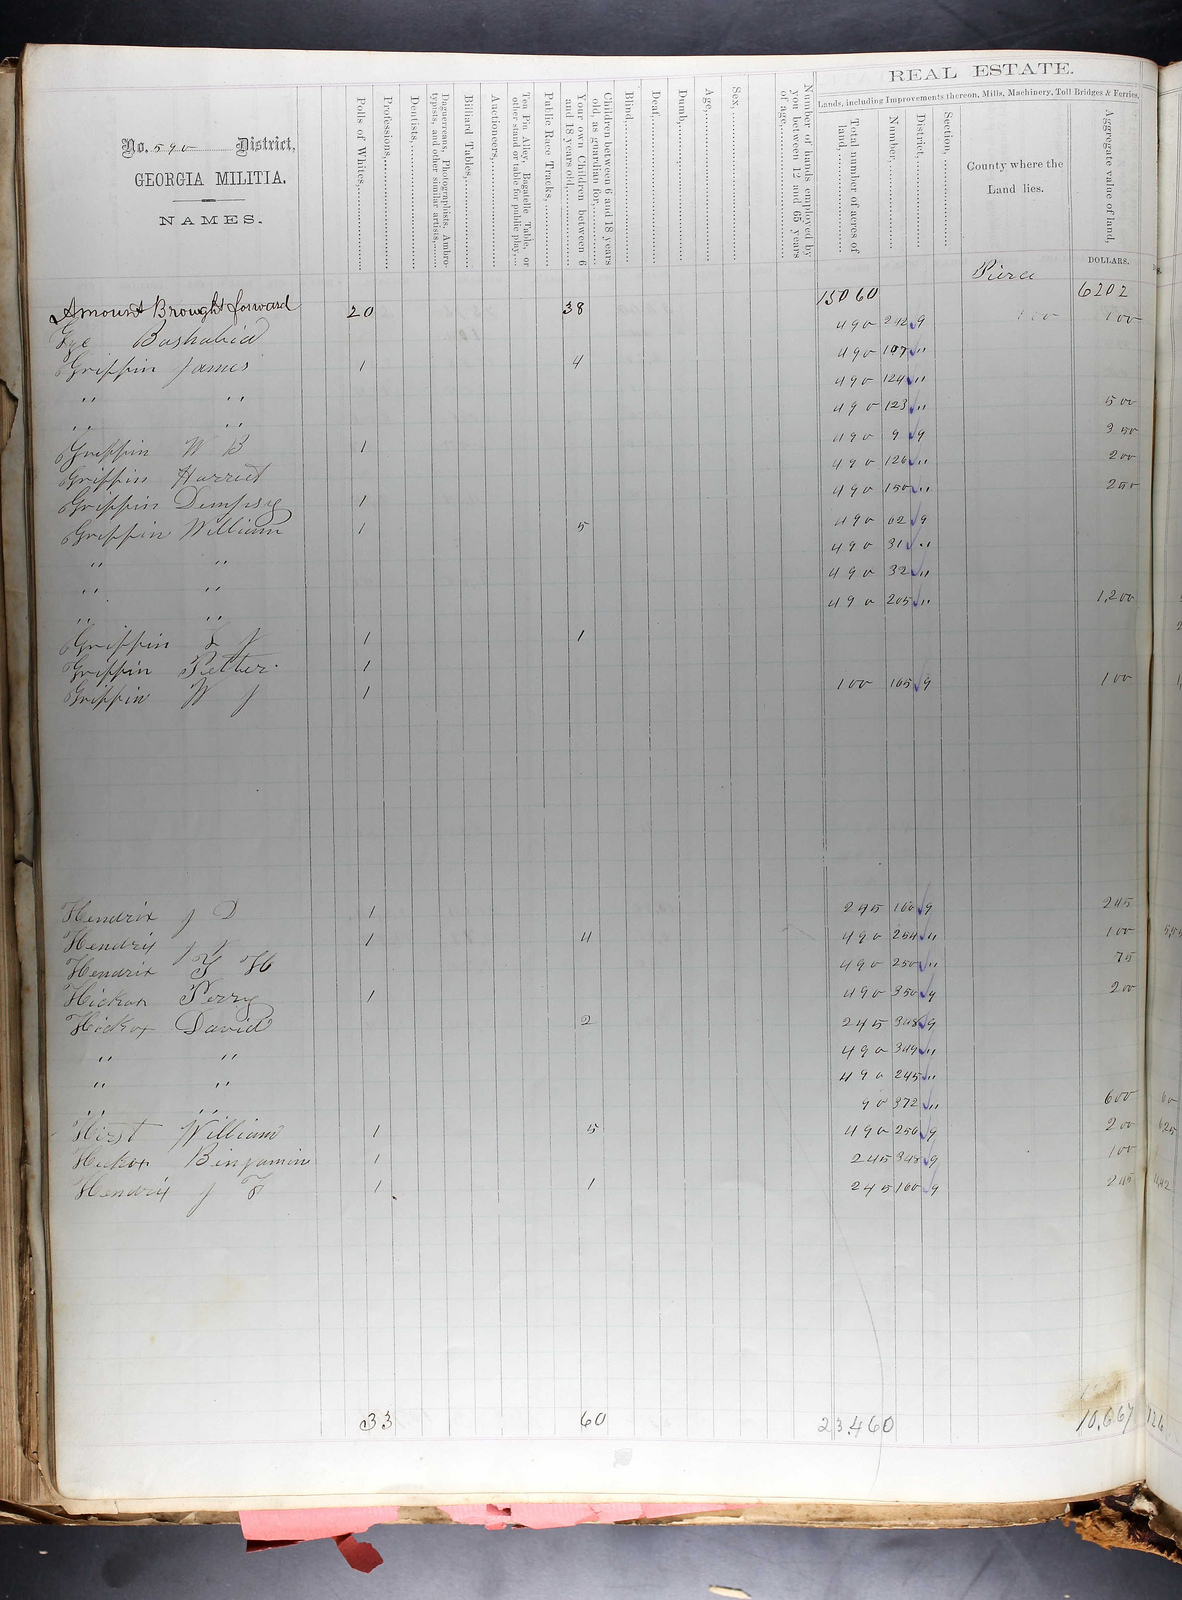 REAL ESTATE.
Lands, including Improvements thereon, Mills, Machinery, Toll Bridges & Ferries.
No. 590 District,
GEORGIA MILITIA.
NAMES.
Polls of Whites,
Professions,
Dentists,
Daguerreans, Photographists, Ambro-
typists, and other similar artists,
Billiard Tables,
Auctioneers,
Ten Pin Alley, Bagatelle Table, or
other stand or table for public play,
Public Race Tracks,
Your own Children between 6
and 18 years old,
Children between 6 and 18 years
old, as guardian for,
Blind,
Deaf,
Dumb,
Age,
Sex,
Number of hands employed by
you between 12 and 65 years
of age,
Total number of acres of
land,
Number,
District,
Section,
County where the
Land lies.
Aggregate value of land,
DOLLARS.
Pierce
Amount Brought forward 20 38 15060 6202
490 242 9 100
Griffin James 1 4 490 107 "
" " 490 124 "
" " 490 123 " 500
Griffin W B 1 490 9 9 350
Griffin Harriet 490 126 " 200
Griffin Dempsey 1 490 150 " 250
Griffin William 1 5 490 62 9
" " 490 31 "
" " 490 32 "
" " 490 205 " 1,200
Griffin L J 1 1
Griffin Petter 1
Griffin W J 1 100 165 9 100
Hendrix J D 1 245 160 9 245
Hendrix J 1 4 490 254 " 100
Hendrix 490 250 " 75
Hickox Perry 1 490 350 9 200
Hickox David 2 245 348 9
" " 490 349 "
" " 490 245 "
" " 90 372 " 600
Hirst William 1 5 490 256 9 200
Hickox Binjamin 1 245 348 9 100
Hendrix J F 1 1 245 160 9 245
33 60 23,460 10,667